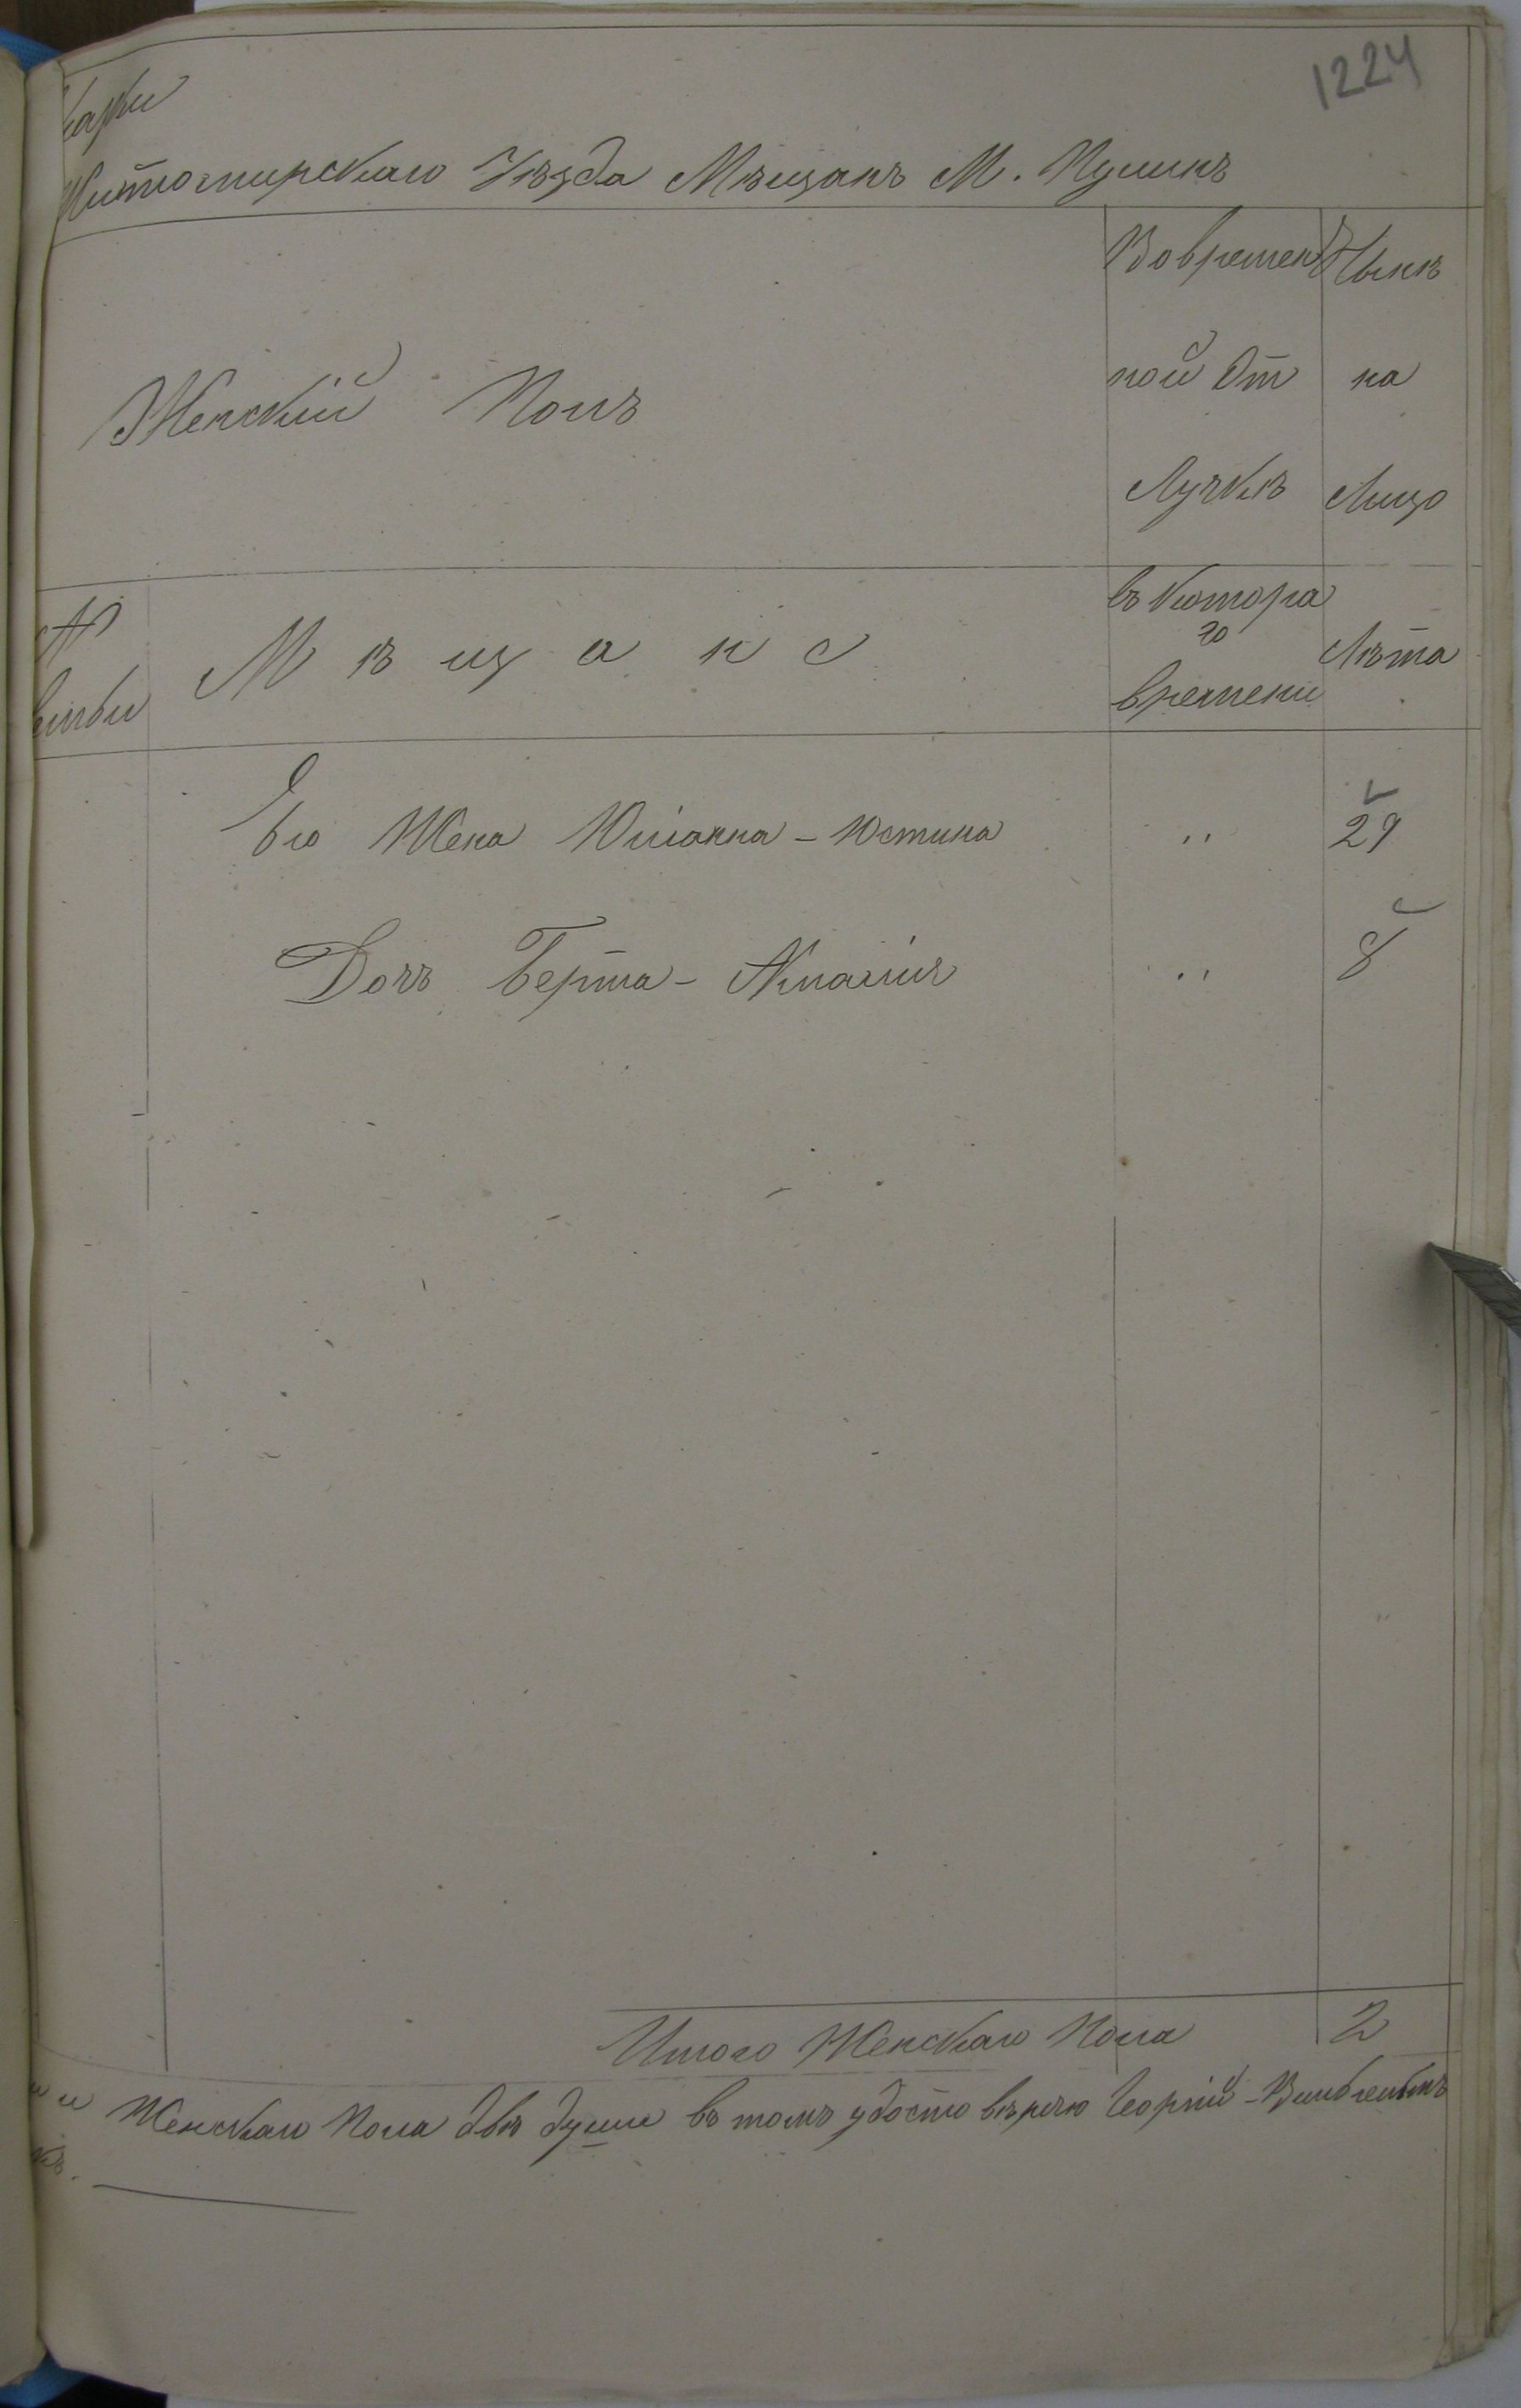 1224
Житомирскаго Уѣзда Мѣщанъ М. Пулинъ
Женскій Полъ
Во времен
ной От
лучкѣ
Нынѣ
на
Лицо
№
Мѣщане
въ котора
го
времени
Лѣта
Его Жена Юліанна - Юстина " 29
Дочь Берта - Амалія " 8
Итого Женскаго Пола 2
Женскаго Пола двѣ души въ томъ удосто вѣряю Георгій - Вильгельмъ